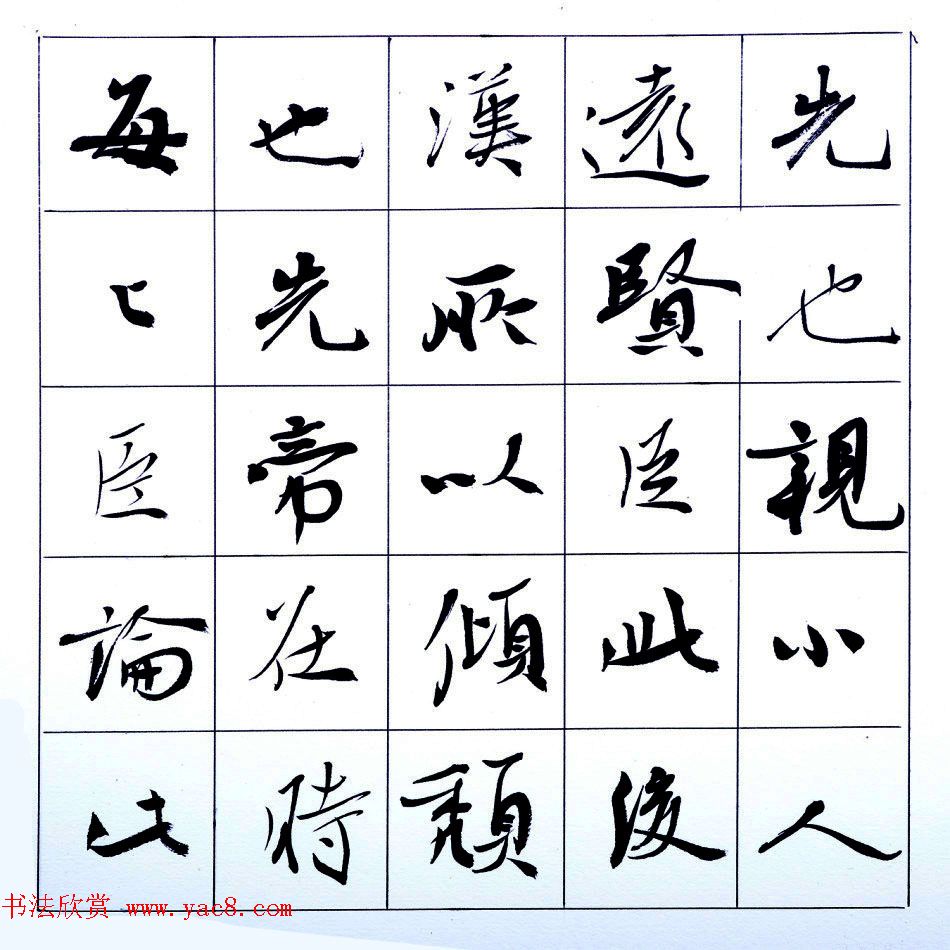 先也親小人
遠賢臣此後
漢所以傾頹
也先帝在時
每與臣論此
书法欣赏 www.yac8.com